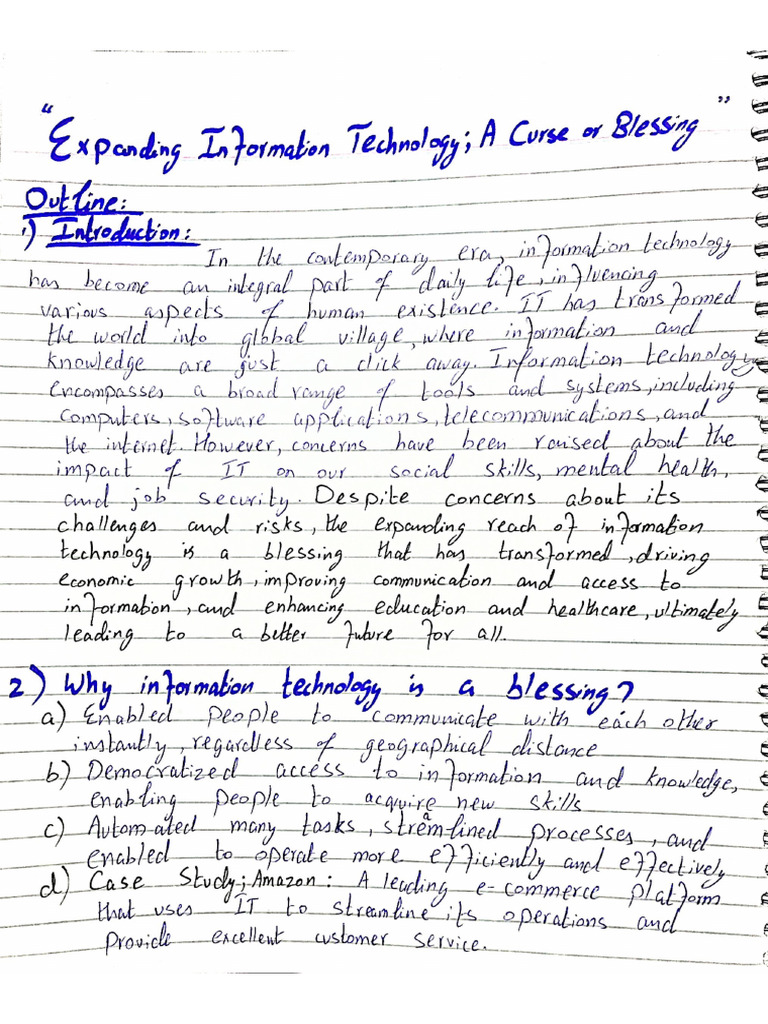 "Expanding Information Technology; A Curse or Blessing"
Outline:
1) Introduction:
In the contemporary era, information technology
has become an integral part of daily life, influencing
various aspects of human existence. IT has transformed
the world into global village, where information and
knowledge are just a click away. Information technology
encompasses a broad range of tools and systems, including
computers, software applications, telecommunications, and
the internet. However, concerns have been raised about the
impact of IT on our social skills, mental health,
and job security. Despite concerns about its
challenges and risks, the expanding reach of information
technology is a blessing that has transformed, driving
economic growth, improving communication and access to
information, and enhancing education and healthcare, ultimately
leading to a better future for all.
2) Why information technology is a blessing?
a) Enabled people to communicate with each other
instantly, regardless of geographical distance
b) Democratized access to information and knowledge,
enabling people to acquire new skills
c) Automated many tasks, streamlined processes, and
enabled to operate more efficiently and effectively
d) Case Study; Amazon: A leading e-commerce platform
that uses IT to streamline its operations and
provide excellent customer service.